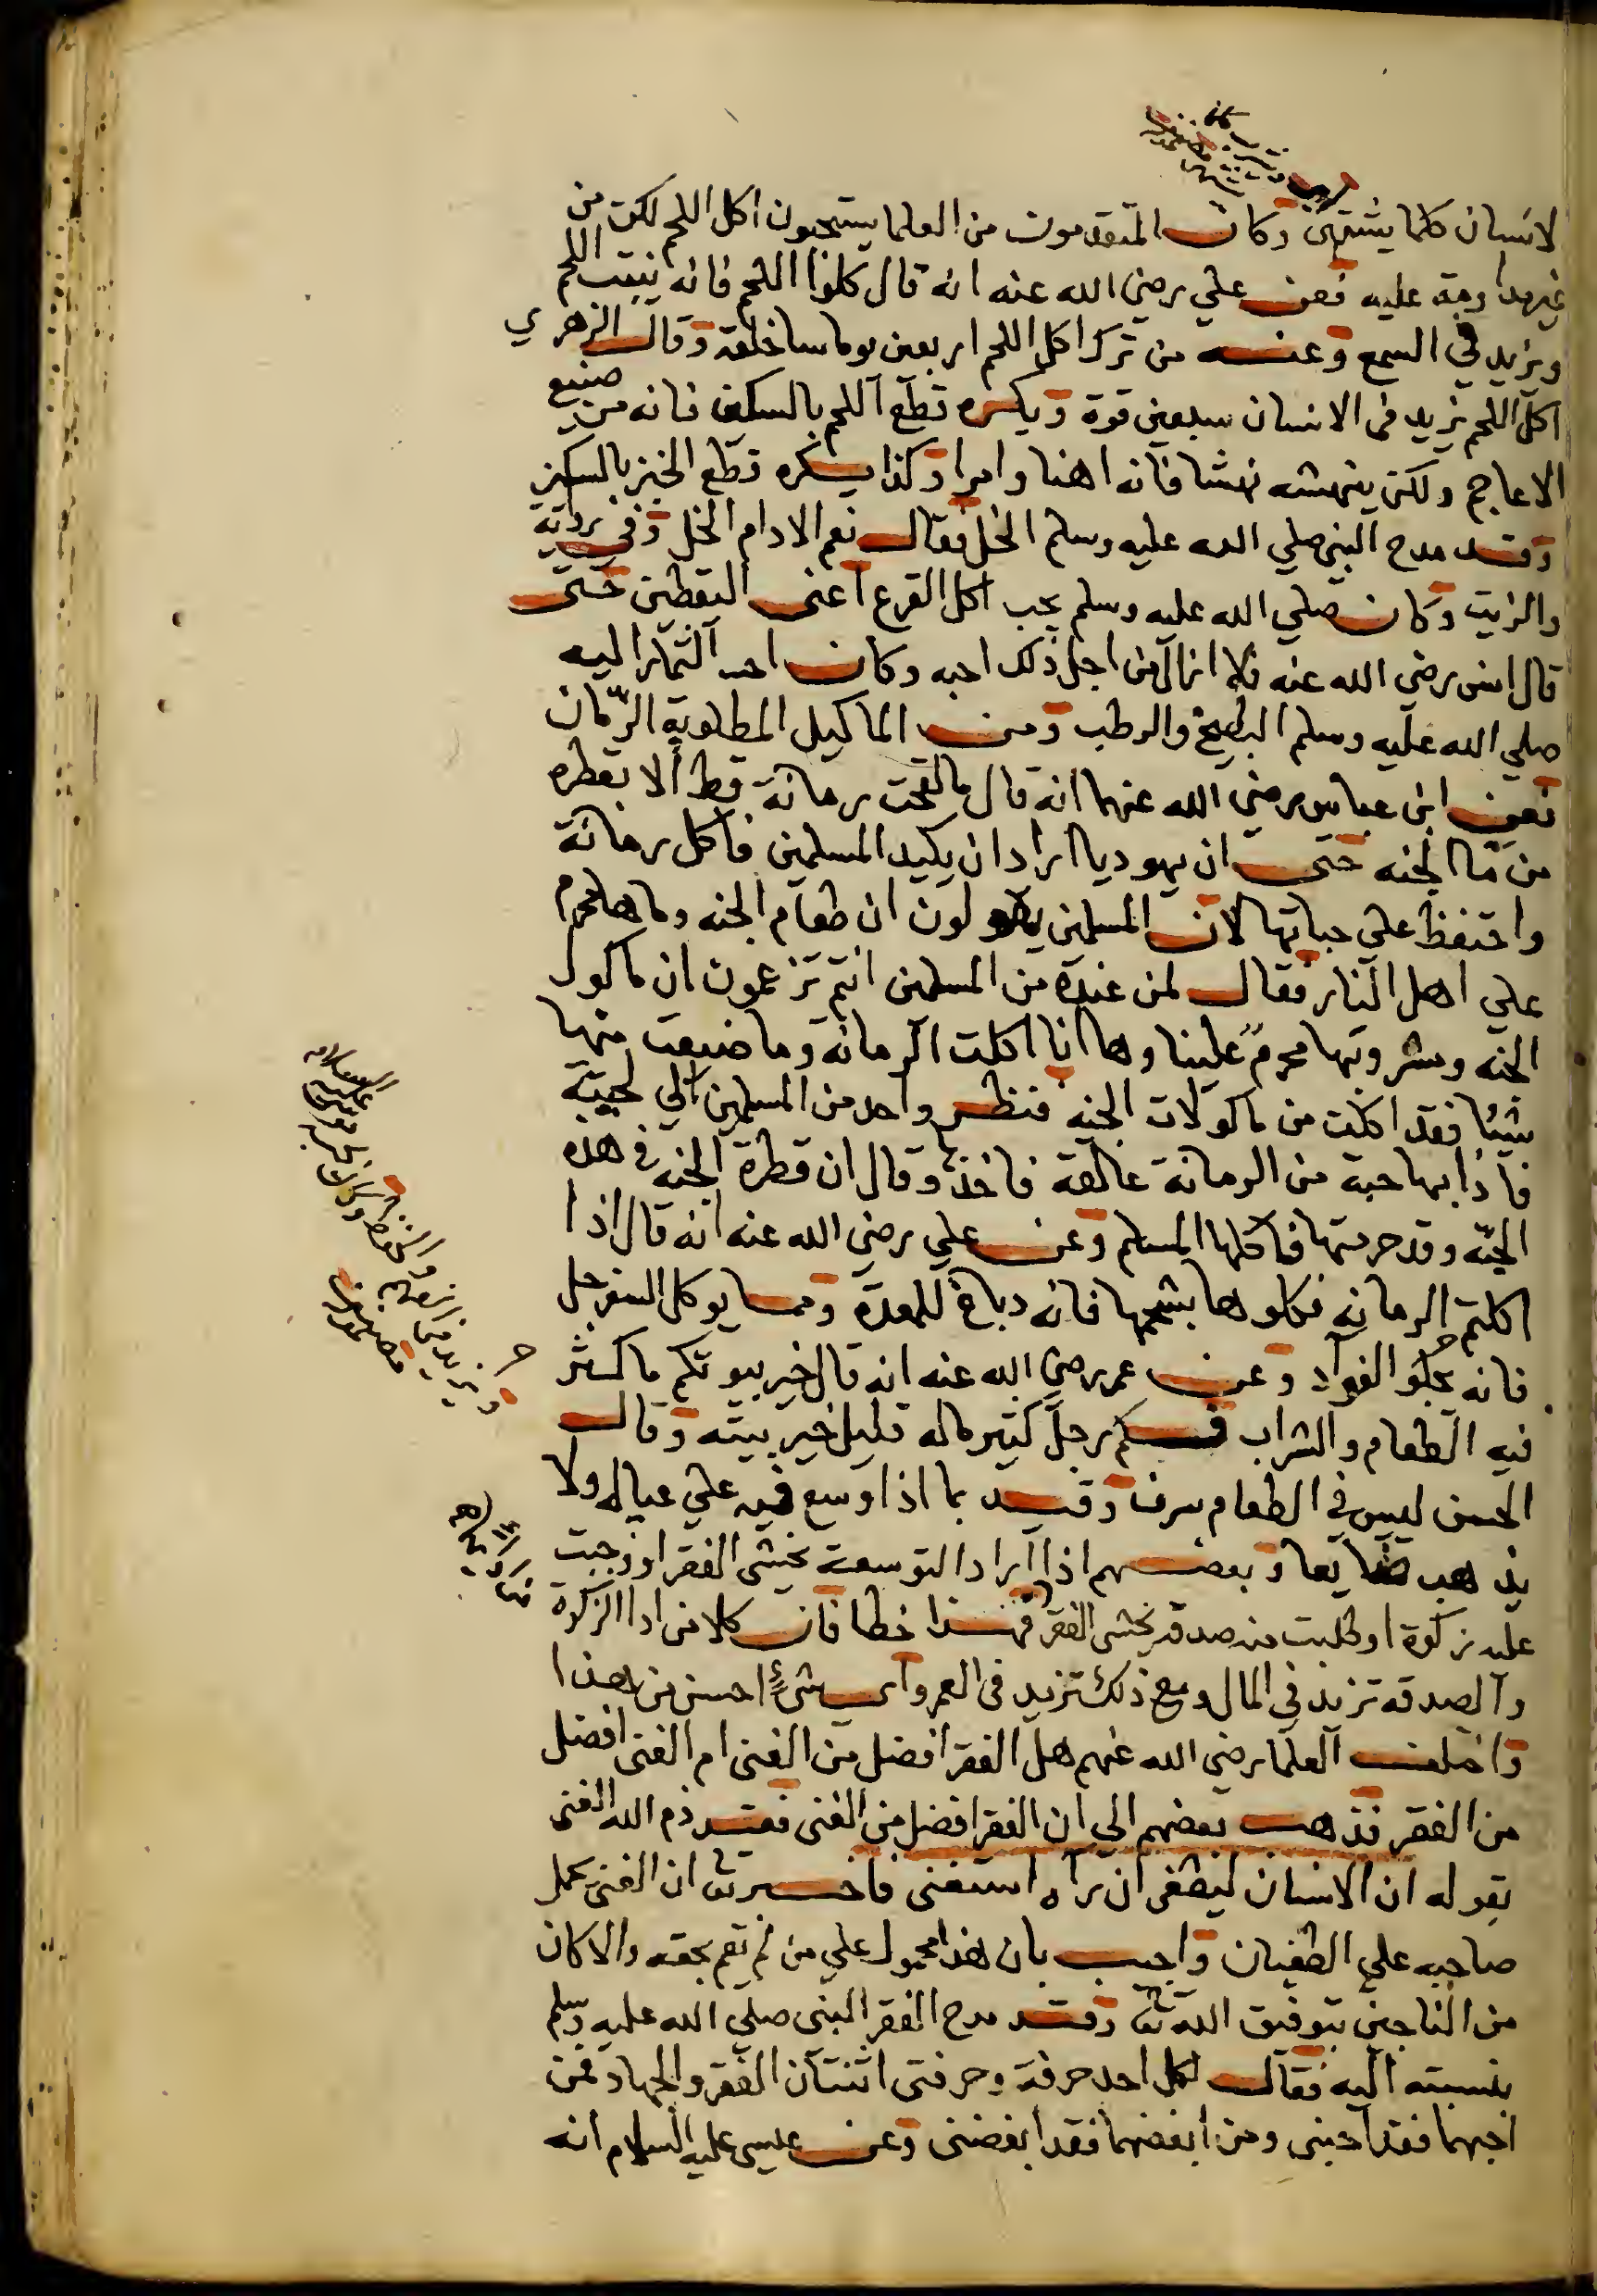 لانسان كلما يشتهى وكان المتقدمون من العلما يستحبون اكل اللحم لكن من
غير مداومة عليه فعن علي رضي الله عنه انه قال كلوا اللحم فانه ينبت اللحم
ويزيد في السمع وعنه من ترك اكل اللحم اربعين يوما سا خلقه وقال الزهري
اكل اللحم يزيد فى الانسان سبعين قوة ويكره قطع اللحم بالسكين فانه من صنيع
الاعاجم ولكن ينهشه نهشا فانه اهنا وامرا وكذا يكره قطع الخبز بالسكين
وقد مدح النبي صلي الله عليه وسلم الخل فقال نعم الادام الخل وفي رواية
والزيت وكان صلي الله عليه وسلم يحب اكل القرع اعنى اليقطين حتى
قال انس رضي الله عنه فلا ازال من اجل ذلك احبه وكان احب الثمار اليه
صلي الله عليه وسلم البطيخ والرطب ومن الماكيل المطلوبة الرمان
فعن ابن عباس رضي الله عنهما انه قال ما لقحت رمانة قط الا بقطره
من ما الجنه حتى ان يهوديا اراد ان يكيد المسلمين فاكل رمانة
واحتفظ علي حباتها لان المسلمين يقولون ان طعام الجنه وماها محرم
علي اهل النار فقال لمن عنده من المسلمين انتم تزعمون ان ماكول
الجنه ومشروبها محرم علينا وها انا اكلت الرمانه وما ضيعت منها
شيئا فقد اكلت من ماكولات الجنه فنظر واحد من المسلمين الي لحيته
فاذا بها حبة من الرمانة عالقة فاخذها وقال ان قطرة الجنه في هذه
الحبه وقد حرمتها فاكلها المسلم وعن علي رضي الله عنه انه قال اذا
اكلتم الرمانه فكلوها بشحمها فانه دباغ للمعدة ومما يوكل السفرجل
فانه يجلو الفواد وعن عمر رضي الله عنه انه قال خير بيوتكم ما كثر
فيه الطعام والشراب فكم رجل كثير ماله قليل خير بيته وقال
الحسن ليس في الطعام سرف وقيد بما اذا وسع فيه علي عياله ولا
يذهب ضايعا وبعضهم اذا اراد التوسعة يخشى الفقر او وجبت
عليه زكوة او طلبت منه صدقه يخشى الفقر فهذا خطا فان كلا من ادا الزكوة
والصدقه تزيد في المال ومع ذلك تزيد فى العمر واي شئ احسن من هذا
واختلف العلما رضي الله عنهم هل الفقر افضل من الغنى ام الغنى افضل
من الفقر فذهب بعضهم الي ان الفقر افضل من الغنى فقد ذم الله الغنى
بقوله ان الانسان ليطغى ان رآه استغنى فاخبر تعا ان الغنى يحمل
صاحبه علي الطغيان واجيب بان هذا محمول علي من لم يقم بحقه والا كان
من الناجين بتوفيق الله تعا وقد مدح الفقر النبي صلي الله عليه وسلم
بنسبته اليه فقال لكل احد حرفة وحرفتى اثنتان الفقر والجهاد فمن
احبهما فقد احبنى ومن ابغضهما فقد ابغضنى وعن عيسي عليه السلام انه